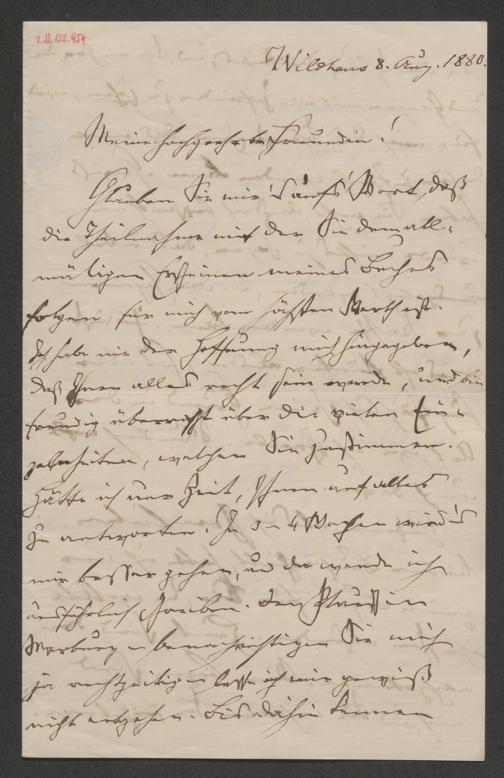 I.N. 122.954
Wildhaus 8. Aug. 1880.
Meine hochgeehrte Freundin!
Glauben Sie mir's aufs Wort, daß
die Theilnahme mit der Sie dem all-
mäligen Erscheinen meines Buches
folgen, für mich vom höchsten Werth ist.
Ich habe nie der Hoffnung mich hingegeben,
daß Ihnen alles recht sein werde, und bin
freudig überrascht über die vielen Ein-
zelnheiten, welchen Sie zustimmen.
Hätte ich nur Zeit, Ihnen auf alles
zu antworten! In 3-4 Wochen wird's
mir besser gehen, und da werde ich
ausführlich schreiben. Den
Marburg benachrichtigen Sie mich
ja rechtzeitig lasse ich mir gewiß
nicht entgehen. Bis dahin können